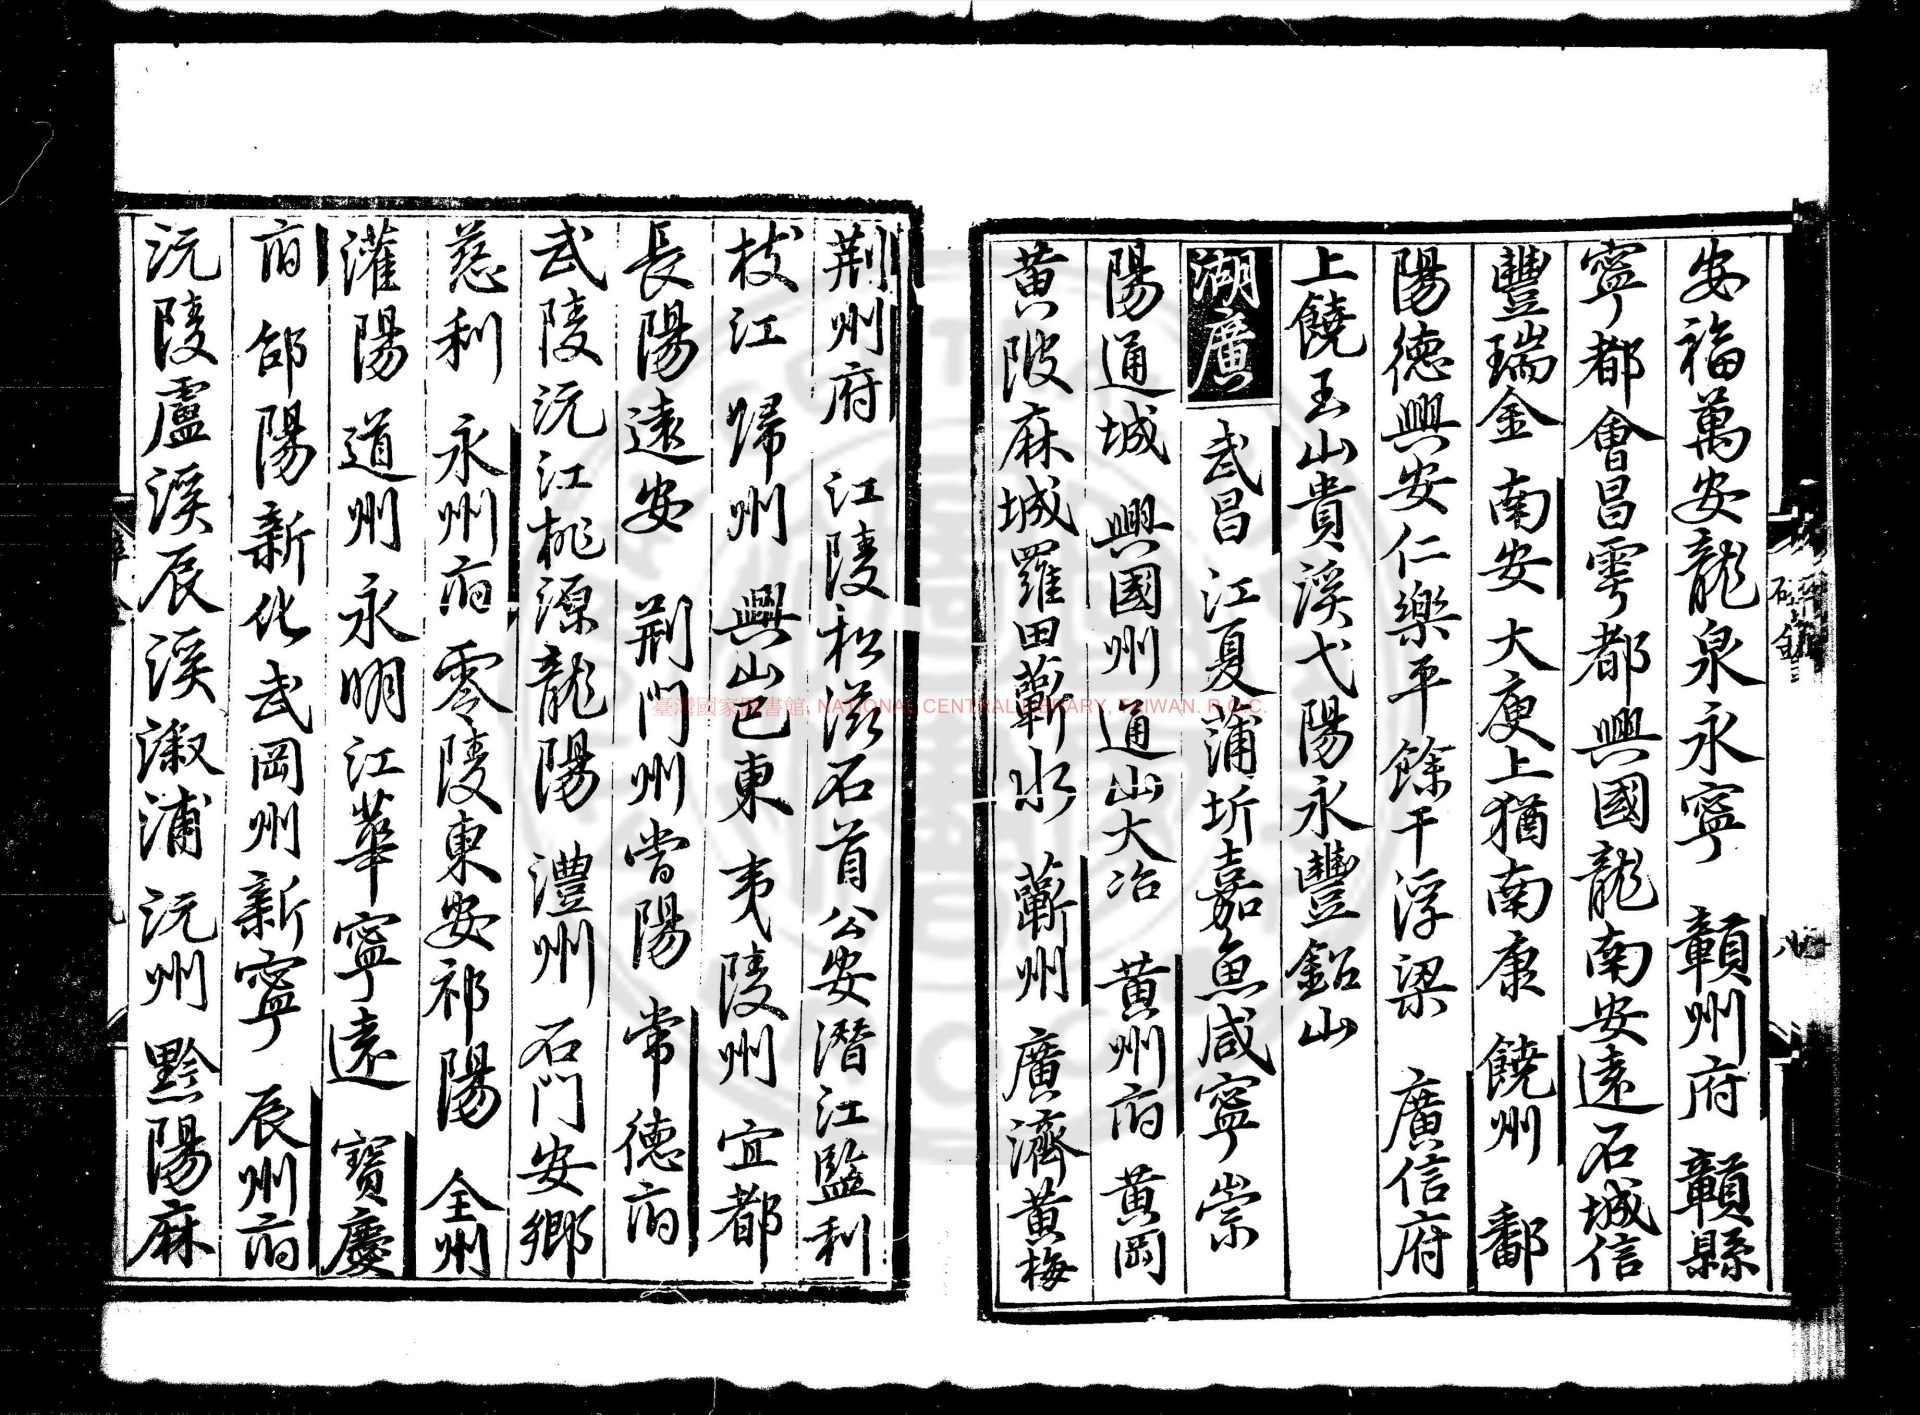 安福萬安龍泉永寧　贛州府　贛縣
寧都會昌雩都興國龍南安遠石城信
豐瑞金　南安　大庾上猶南康　饒州　鄱
陽德興安仁樂平餘干浮梁　廣信府
上饒玉山貴溪弋陽永豐鉛山
湖廣　武昌　江夏蒲圻嘉魚咸寧崇
陽通城　興國州　通山大冶　黃州府　黃岡
黃陂麻城羅田蘄水　蘄州　廣濟黃梅
荆州府　江陵松滋石首公安潛江監利
枝江　歸州　興山巴東　夷陵州　宜都
長陽遠安　荆門州當陽　常德府
武陵沅江桃源龍陽　澧州　石門安鄉
慈利　永州府　零陵東安祁陽　全州
灌陽　道州　永明江華寧遠　寶慶
府　邵陽新化武岡州新寧　辰州府
沅陵盧溪辰溪漵浦　沅州　黔陽麻
臺灣國家圖書館, NATIONAL CENTRAL LIBRARY, TAIWAN. R.O.C.